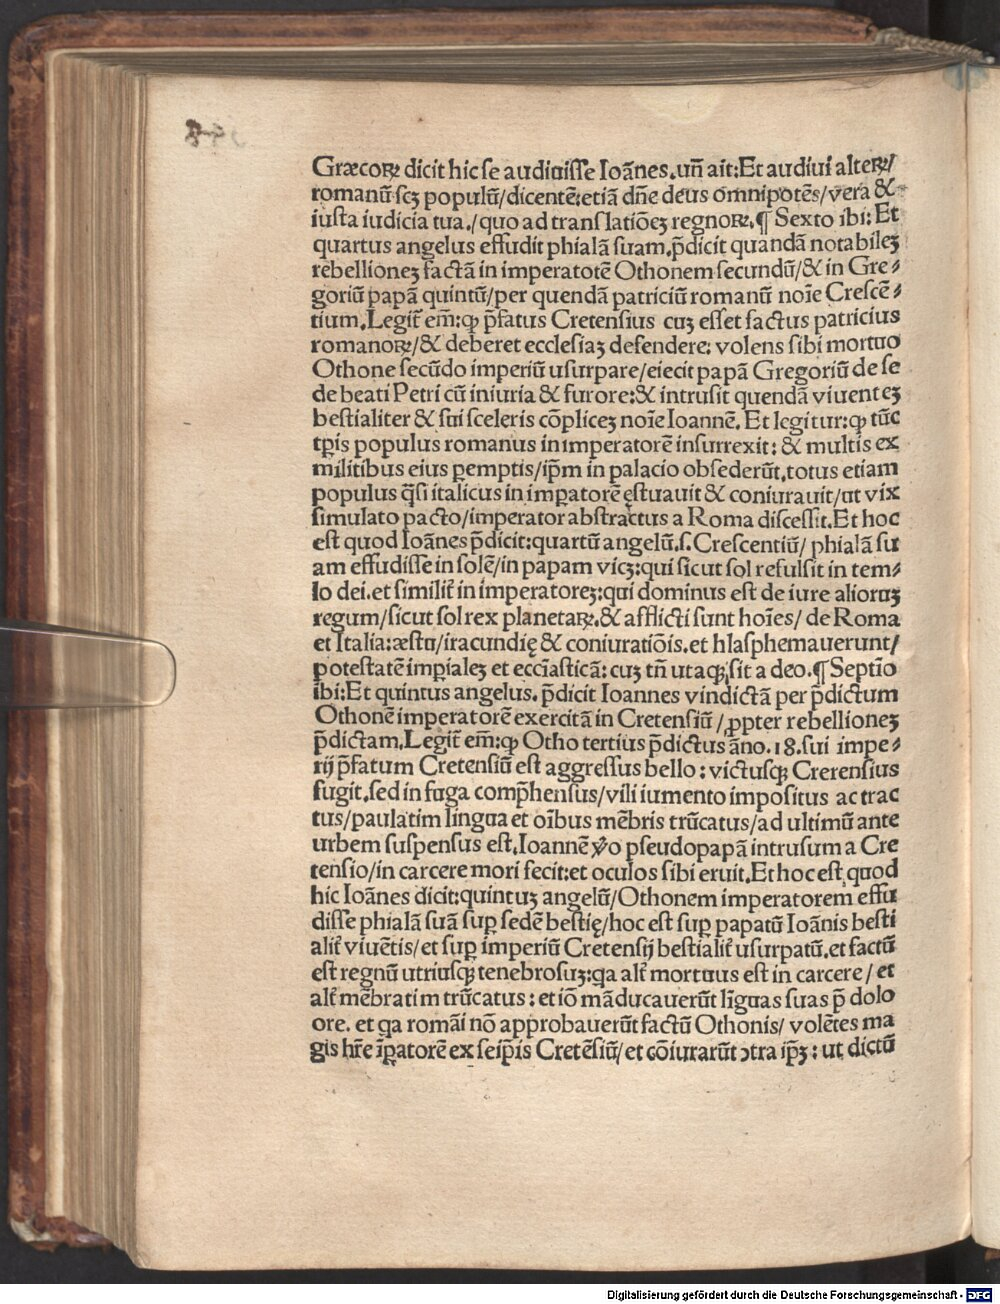 Græcoꝝ dicit hic se audiuisse Ioãnes.uñ ait:Et audiui alteꝝ/
romanũ scꝫ populũ/dicentẽ:etiã dñe deus omnipotẽs/vera &
iusta iudicia tua./quo ad translatiõeꝫ regnoꝝ.¶ Sexto ibi: Et
quartus angelus effudit phialã suam.p̃dicit quandã notabileꝫ
rebellioneꝫ factã in imperatotẽ Othonem secundũ/& in Gre⸗
goriũ papã quintũ/per quendã patriciũ romanũ noĩe Crescẽ⸗
tium.Legit̃ em̃:ꝙ p̃fatus Cretensius cuꝫ esset factus patricius
romanoꝝ/& deberet ecclesiaꝫ defendere: volens sibi mortuo
Othone secũdo imperiũ usurpare/eiecit papã Gregoriũ de se
de beati Petri cũ iniuria & furore:& intrusit quendã viuenteꝫ
bestialiter & sui sceleris cõpliceꝫ noĩe Ioannẽ. Et legitur:ꝙ tũc
tꝑis populus romanus in imperatorẽ insurrexit: & multis ex
militibus eius ꝑemptis/ip̃m in palacio obsederũt.totus etiam
populus q̃si italicus in imꝑatorẽ ęstuauit & coniurauit/ut vix
simulato pacto/imperator abstractus a Roma discessit.Et hoc
est quod Ioãnes p̃dicit:quartũ angelũ.s.Crescentiũ/ phialã su
am effudisse in solẽ/in papam vicꝫ:qui sicut sol refulsit in tem⸗
lo dei.et similit̃ in imperatoreꝫ:qui dominus est de iure alioruꝫ
regum/sicut sol rex planetaꝝ.& afflicti sunt hoĩes/ de Roma
et Italia:æstu/iracundię & coniuratiõis.et hlasphemauerunt/
potestatẽ imꝑialeꝫ et ecc̃iasticã: cuꝫ tñ utaqꝫ sit a deo.¶ Septĩo
ibi:Et quintus angelus. p̃dicit Ioannes vindictã per p̃dictum
Othonẽ imperatorẽ exercitã in Cretensiũ /ꝓpter rebellioneꝫ
p̃dictam.Legit̃ em̃:ꝙ Otho tertius p̃dictus ãno.18.sui impe⸗
rij p̃fatum Cretensiũ est aggressus bello : victusqꝫ Crerensius
fugit.sed in fuga comp̃hensus/vili iumento impositus ac trac
tus/paulatim lingua et oĩbus mẽbris trũcatus/ad ultimũ ante
urbem suspensus est.Ioannẽ v̊o pseudopapã intrusum a Cre
tensio/in carcere mori fecit:et oculos sibi eruit.Et hoc est quod
hic Ioãnes dicit:quintuꝫ angelũ/Othonem imperatorem effu
disse phialã suã suꝑ sedẽ bestię/hoc est suꝑ papatũ Ioãnis besti
alit̃ viuẽtis/et suꝑ imperiũ Cretensij bestialit̃ usurpatũ.et factũ
est regnũ utriusqꝫ tenebrosuꝫ:qa alt̃ mortuus est in carcere/ et
alt̃ mẽbratim trũcatus : et iõ mãducauerũt lĩguas suas p̃ dolo
ore. et qa romãi nõ approbauerũt factũ Othonis/ volẽtes ma
gis hr̃e ĩꝑatorẽ ex seip̃is Cretẽsiũ/et cõiurarũt ↄtra ip̃ꝫ : ut dictũ
Digitalisierung gefördert durch die Deutsche Forschungsgemeinschaft - DFG